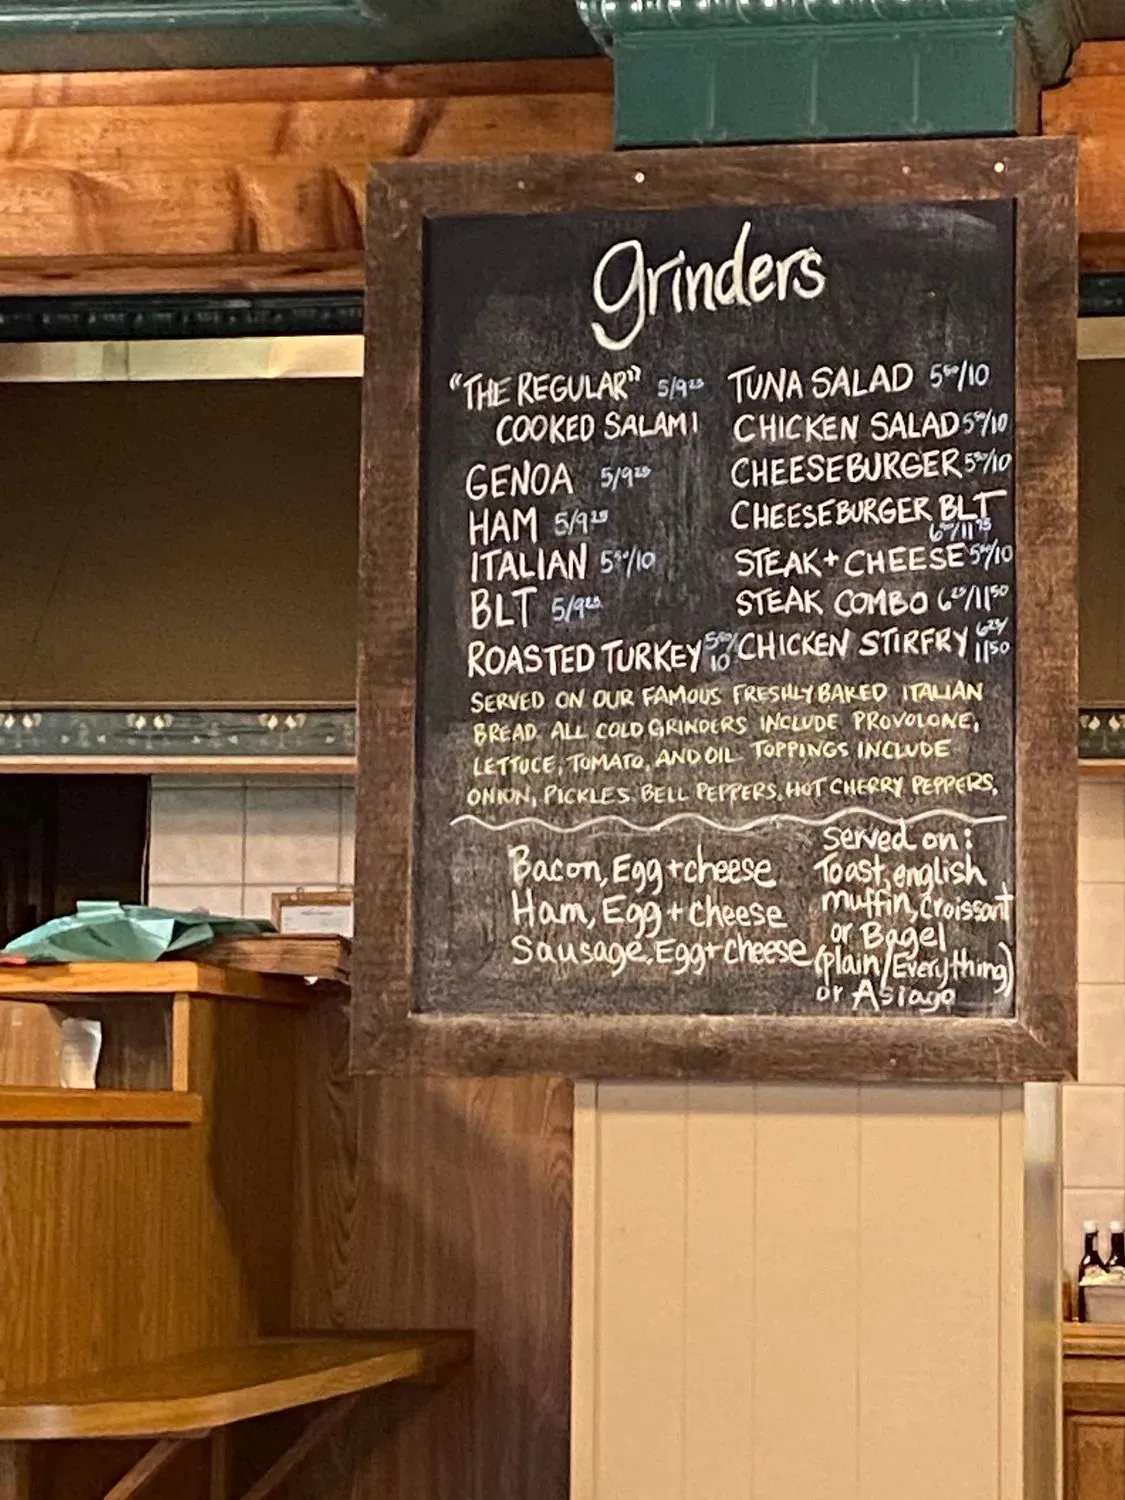 grinders
"THE REGULAR" 5/9²⁵
COOKED SALAMI
GENOA 5/9²⁵
HAM 5/9²⁵
ITALIAN 5⁵⁰/10
BLT 5/9²⁵
ROASTED TURKEY 5⁵⁰/10
TUNA SALAD 5⁵⁰/10
CHICKEN SALAD 5⁵⁰/10
CHEESEBURGER 5⁵⁰/10
CHEESEBURGER BLT
6⁵⁰/11⁷⁵
STEAK + CHEESE 5⁵⁰/10
STEAK COMBO 6²⁵/11⁵⁰
CHICKEN STIRFRY 6²⁵/11⁵⁰
SERVED ON OUR FAMOUS FRESHLY BAKED ITALIAN
BREAD. ALL COLD GRINDERS INCLUDE PROVOLONE,
LETTUCE, TOMATO, AND OIL. TOPPINGS INCLUDE
ONION, PICKLES, BELL PEPPERS, HOT CHERRY PEPPERS.
Bacon, Egg + cheese
Ham, Egg + cheese
Sausage, Egg + cheese
Served on:
Toast, english
muffin, croissant
or Bagel
(plain/Everything)
or Asiago